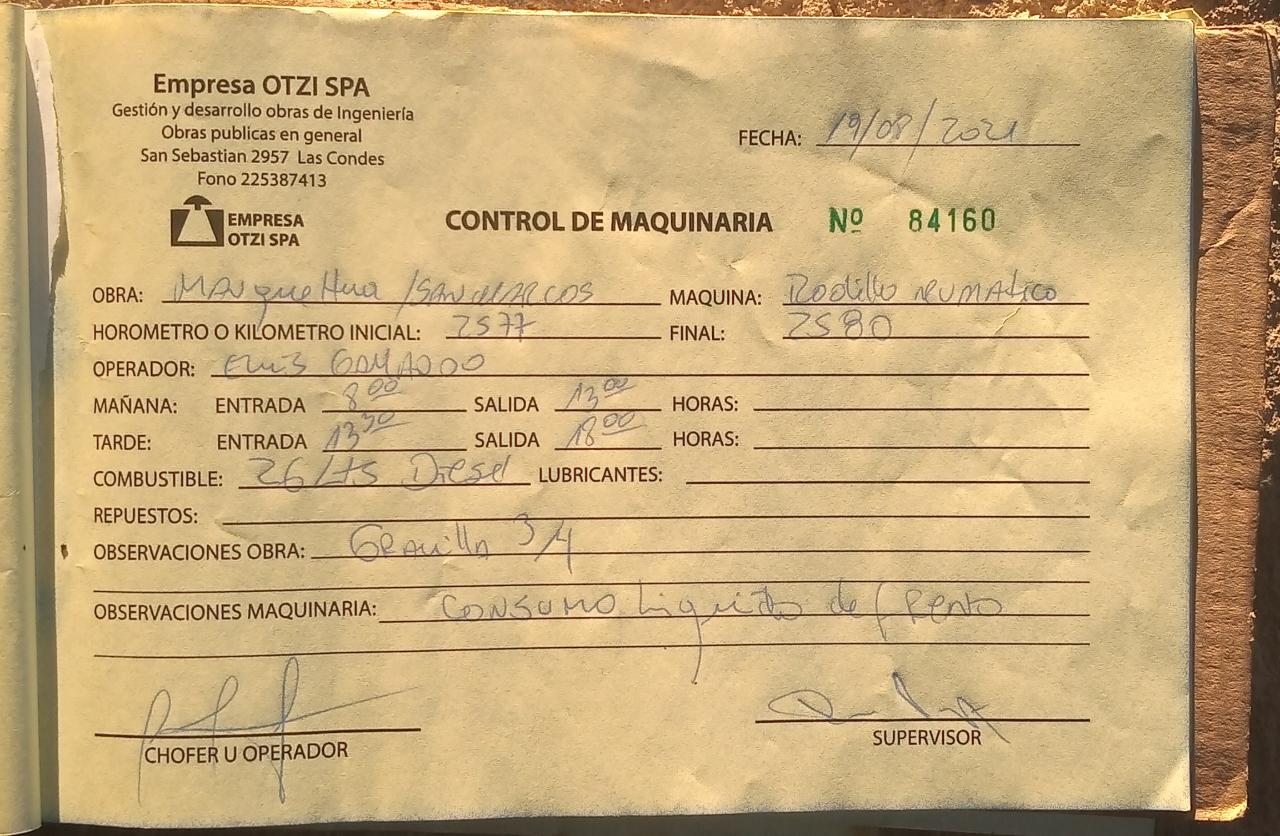 Empresa OTZI SPA
Gestión y desarrollo obras de Ingeniería
Obras publicas en general
San Sebastian 2957 Las Condes
Fono 225387413
FECHA: 19/08/2021
EMPRESA
OTZI SPA
CONTROL DE MAQUINARIA Nº 84160
OBRA: /SAN MARCOS MAQUINA: Rodillo NEUMATICO
HOROMETRO O KILOMETRO INICIAL: 2577 FINAL: 2580
OPERADOR:
MAÑANA: ENTRADA 8:00 SALIDA 13:00 HORAS:
TARDE: ENTRADA 13:30 SALIDA 18:00 HORAS:
COMBUSTIBLE: 26 Lts Diesel LUBRICANTES:
REPUESTOS:
OBSERVACIONES OBRA: GRAvillA 3/4
OBSERVACIONES MAQUINARIA: CONSUMO liquido de freno
CHOFER U OPERADOR
SUPERVISOR